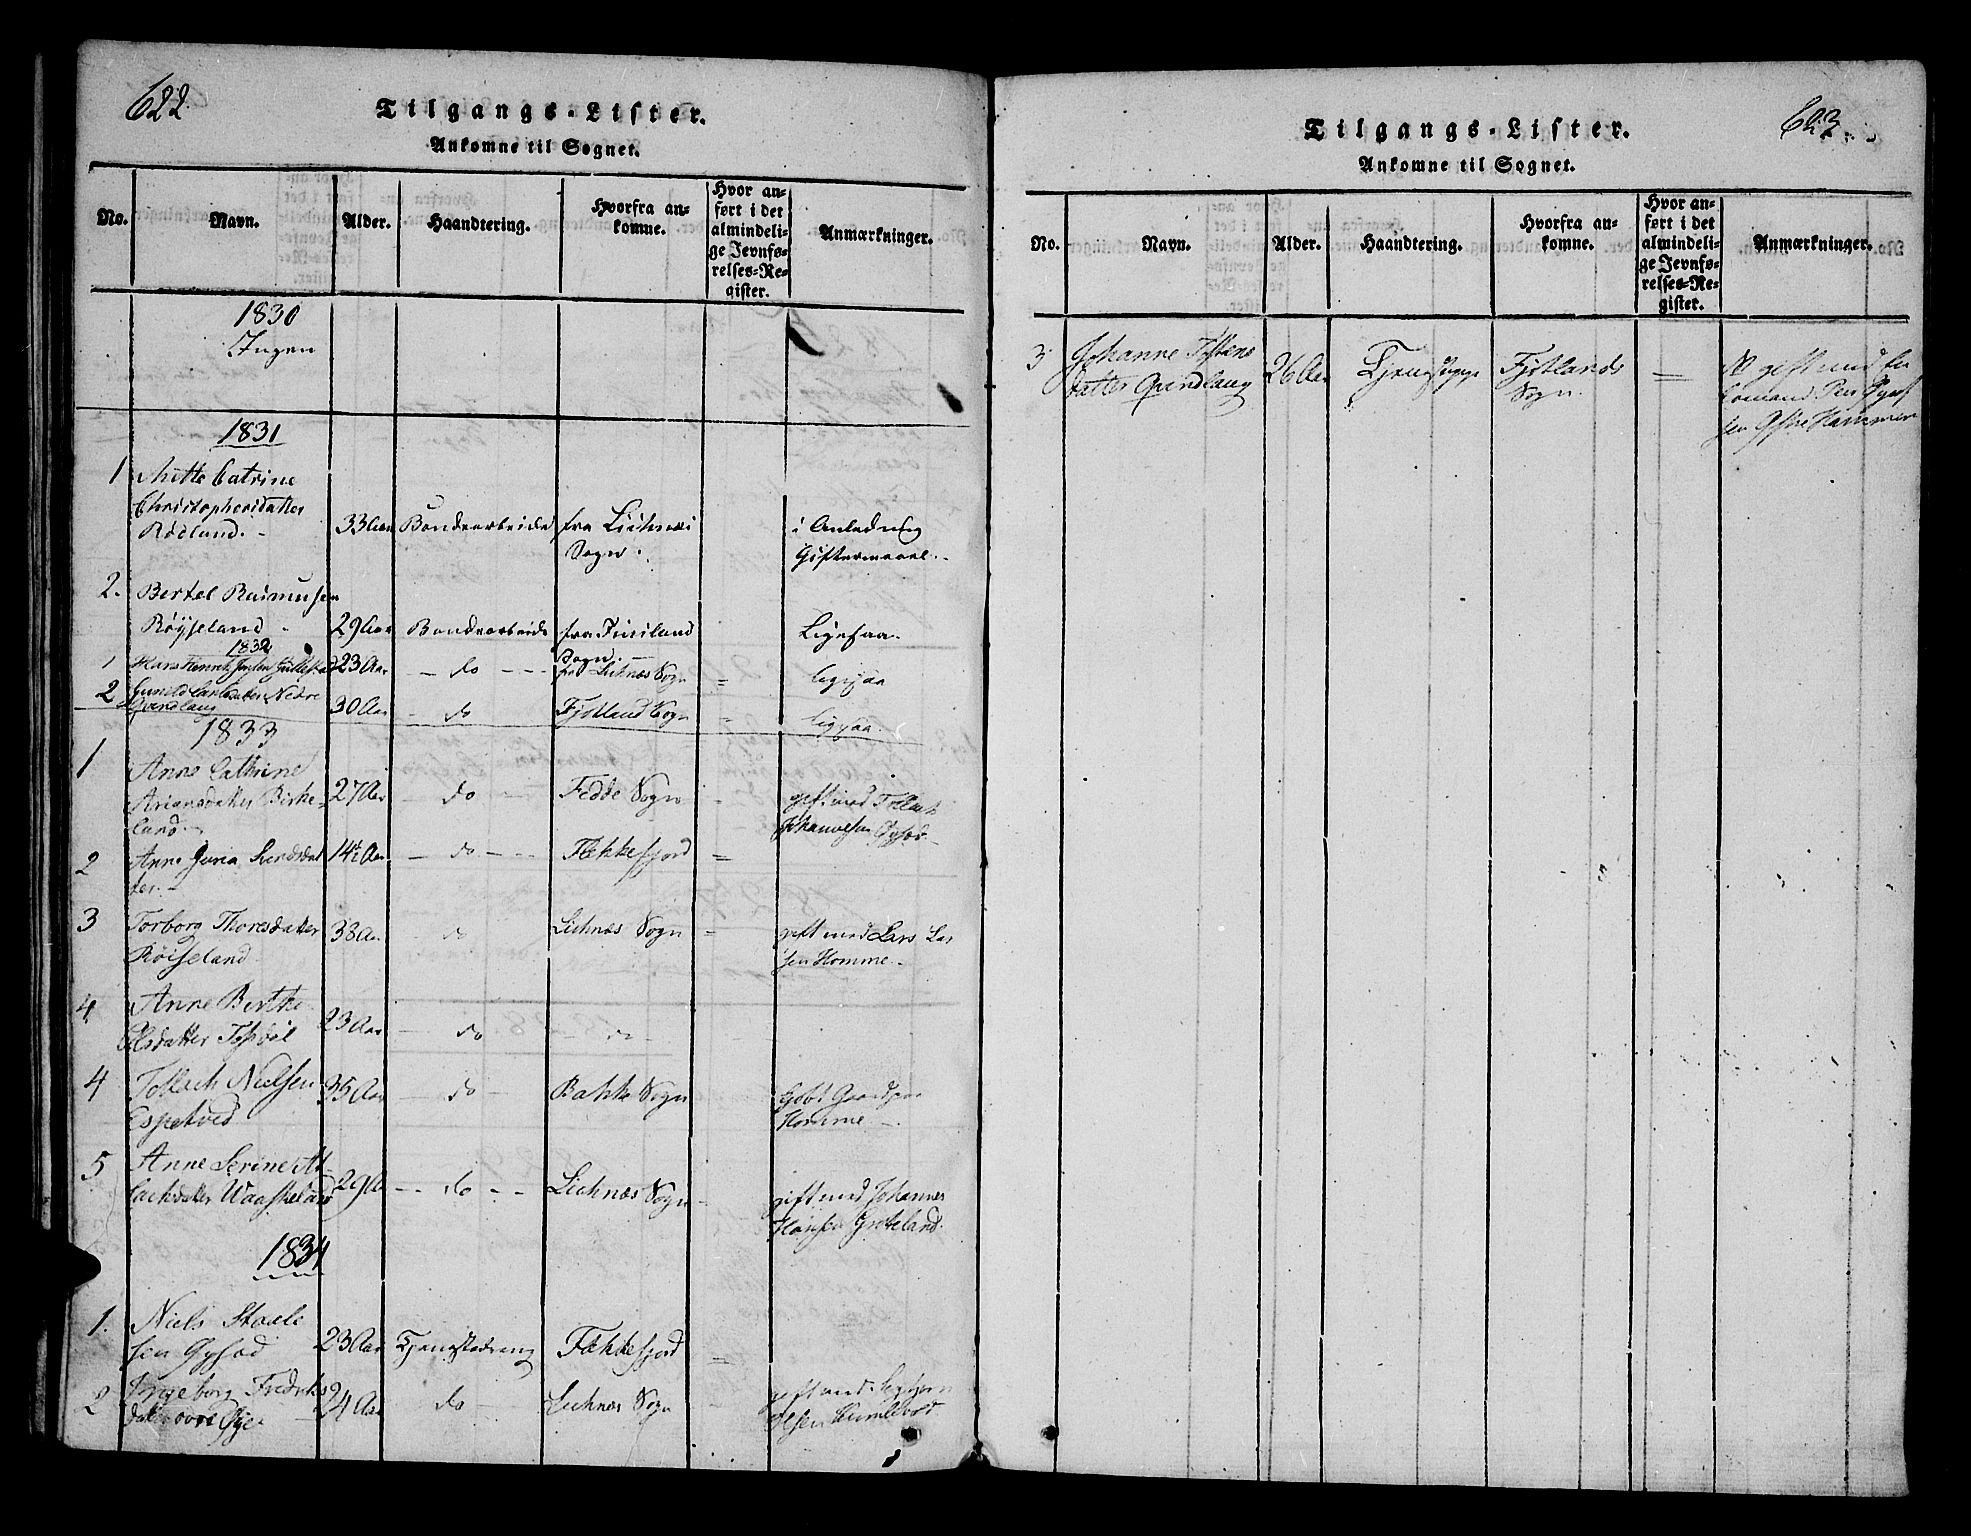 622
Tilgangs-Lister.
Ankomne til Sognet.
No. Navn. Alder. Haandtering. Hvorfra ankomne. Hvor anført i det almindelige Jevnførelses-Register. Anmærkninger.
1830
Ingen
1831
1 Mette Catrine
Christophersdatter
Rødland.
33 Aar Bondearbeide fra Liehnæs
Sogn.
i Anledning
Giftermaal.
2. Bertel Rasmusen
Røyseland 29 Aar Bondearbeide fra
Sogn
Ligesaa.
1832
1 Hans 23 Aar do fra Liehnæs Sogn = ligesaa
2 Gunild Nedre
Qvindlaug 30 Aar do Fjotland Sogn = ligesaa.
1833
1 Anne Cathrine
Ariansdatter Birke-
land.
27 Aar do Fedde Sogn
gift med Tollack
Johannesen Gysod
2 Anne
ter. 14 Aar do Flekkefjord =
3 Torborg Thoresdatter
Røiseland 38 Aar do Liehnæs Sogn =
gift med Lars Lar
sen Homme.
4. Anne Birthe
Olsdatter 23 Aar do do
4 Tollach Nielsen
Espetved 35 Aar do Bakke Sogn
kjøbt Gaardpar
Homme
5 Anne Serine At-
lachdatter 29 Aar do Liehnæs Sogn
gift med Johannes
Hansen
1834
1. Niels Staale
sen Gysod 23 Aar Tjenestedreng Flekkefjord =
2 Ingeborg Fredriks
datter 24 Aar do Liehnæs Sogn
gift med
Olsen
623
Tilgangs-Lister.
Ankomne til Sognet.
No. Navn. Alder. Haandtering. Hvorfra ankomne. Hvor anført i det almindelige Jevnførelses-Register. Anmærkninger.
3 Johanne Tostens
datter Qvindlaug 26 Aar Tjenestepige Fjotlands
Sogn =
gift med En
kemand
sen